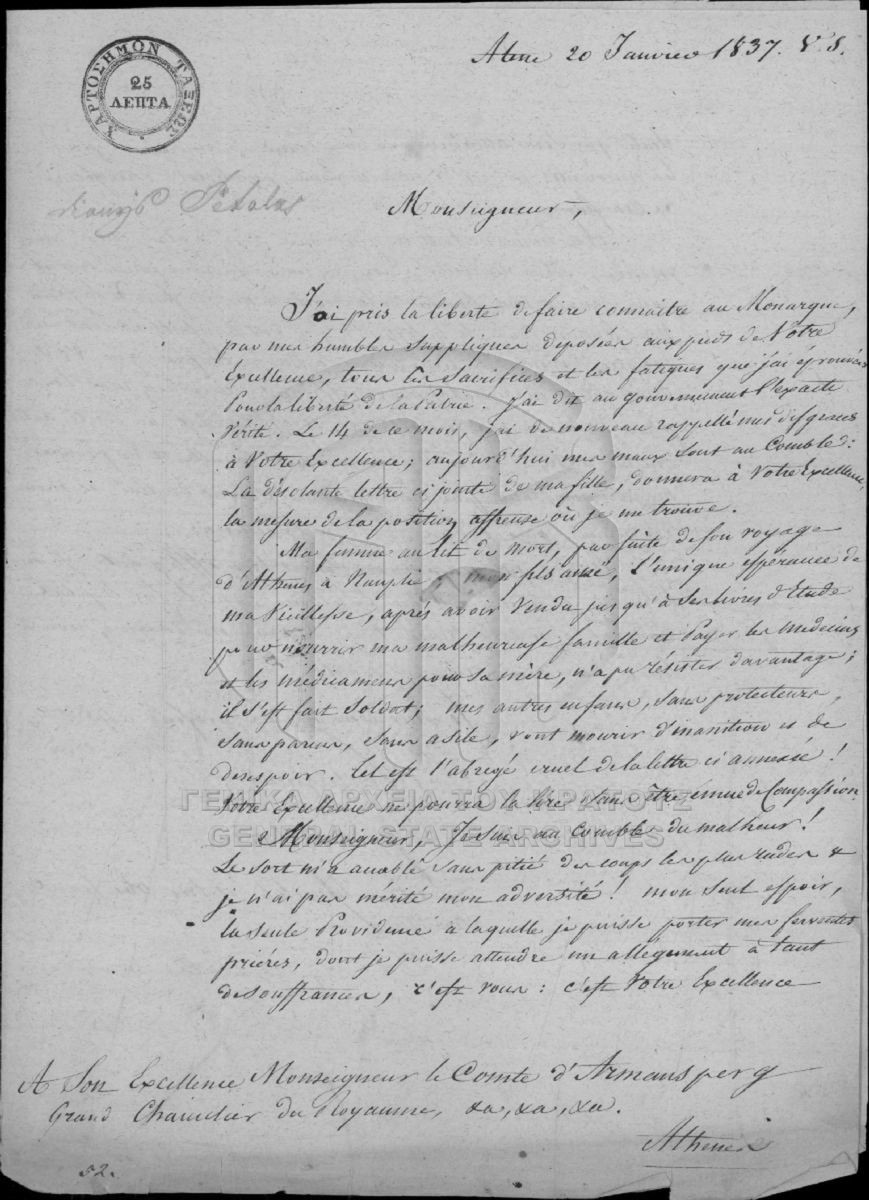 Atene 20 Janvier 1837. V.S.
ΧΑΡΤΟΣΗΜΟΝ ΤΑΞΕΩΣ
25
ΛΕΠΤΑ
Monseigneur,
J'ai pris la liberté de faire connaitre au Monarque,
par mes humbles suppliques deposées aux pieds de Votre
Excellence, tous les sacrifices et les fatigues que j'ai eprouvées
Pour la liberté de la Patrie. J'ai dit au gouvernement l'exacte
Vérité. Le 14 de ce mois, j'ai de nouveau rappellé mes disgraces
à Votre Excellence; aujourd'hui mes maux sont au Comble:
La désolante lettre ci jointe de ma fille, donnera à Votre Excellence,
la mesure de la position affreuse où je me trouve.
Ma femme au lit de mort, par suite de son voyage
d'Athenes à Nauplie, mon fils ainé, l'unique espérance de
ma Vieillesse, aprés avoir vendu jusqu'à ses livres d'Etude
pour nourrir ma malheureuse famille et Payer les medecins
et les médicamens pour sa mère, n'a pu résister davantage;
il s'est fait soldat; mes autres enfans, sans protecteurs,
sans parens, sans asile, vont mourir d'inanition et de
desespoir. Tel est l'abregé cruel de la lettre ci annexée!
Votre Excellence ne pourra la lire sans être émue de Compassion.
Monseigneur, Je suis au comble du malheur!
Le sort m'a accablé sans pitié des coups les plus rudes &
je n'ai pas mérité mon adversité! mon seul espoir,
la seule Providence à laquelle je puisse porter mes ferventes
priéres, dont je puisse attendre un allégement à tant
de souffrances, c'est vous: c'est Votre Excellence
A Son Excellence Monseigneur le Comte d'Armansperg
Grand Chancelier du Royaume, &a, &a, &a.
Athenes
52.
ΓΕΝΙΚΑ ΑΡΧΕΙΑ ΤΟΥ ΚΡΑΤΟΥΣ
GENERAL STATE ARCHIVES